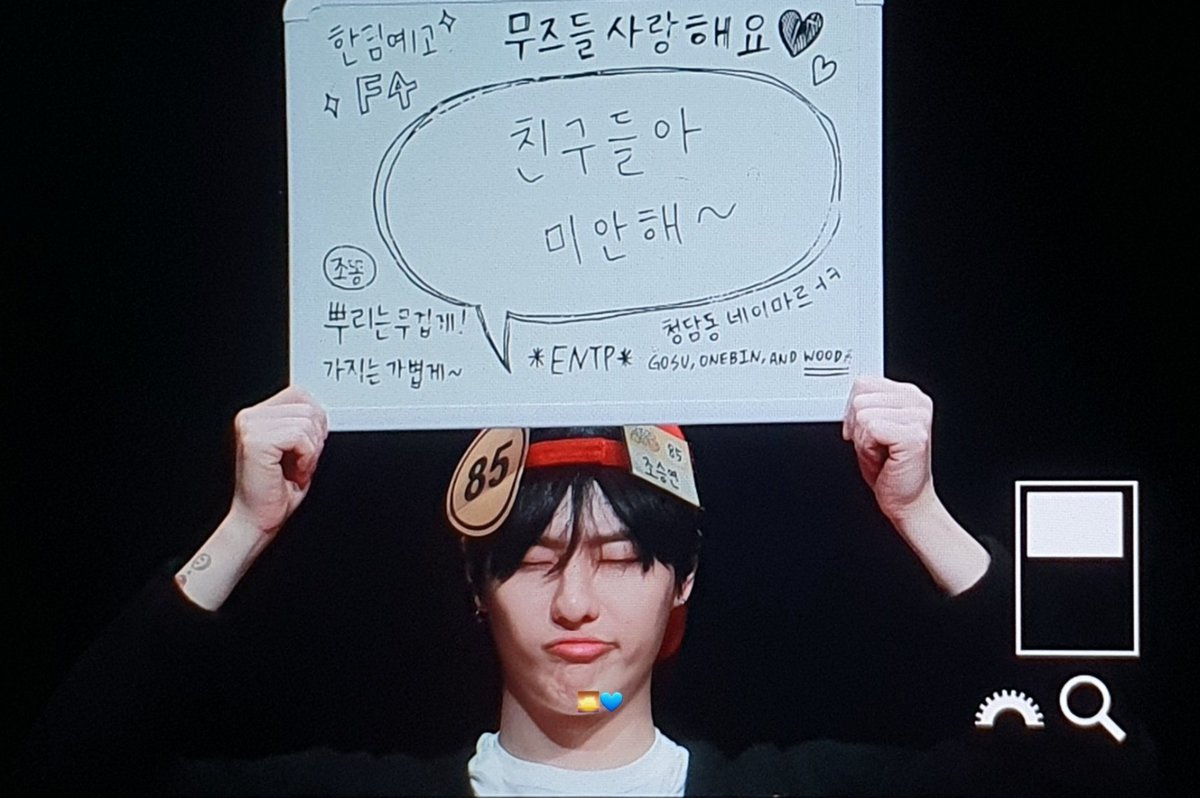 한림예고
F4
무즈들 사랑해요
친구들아
미안해~
조똥
뿌리는 무겁게!
가지는 가볍게~
*ENTP*
청담동 네이마르 ㅓㅋ
GOSU, ONEBIN, AND WOODZ
85
85
조승연